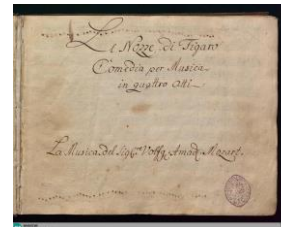 Le Nozze di Figaro
Comedia per Musica
in quattro Atti
La Musica del Sig:re Volfg: Amad: Mozart.